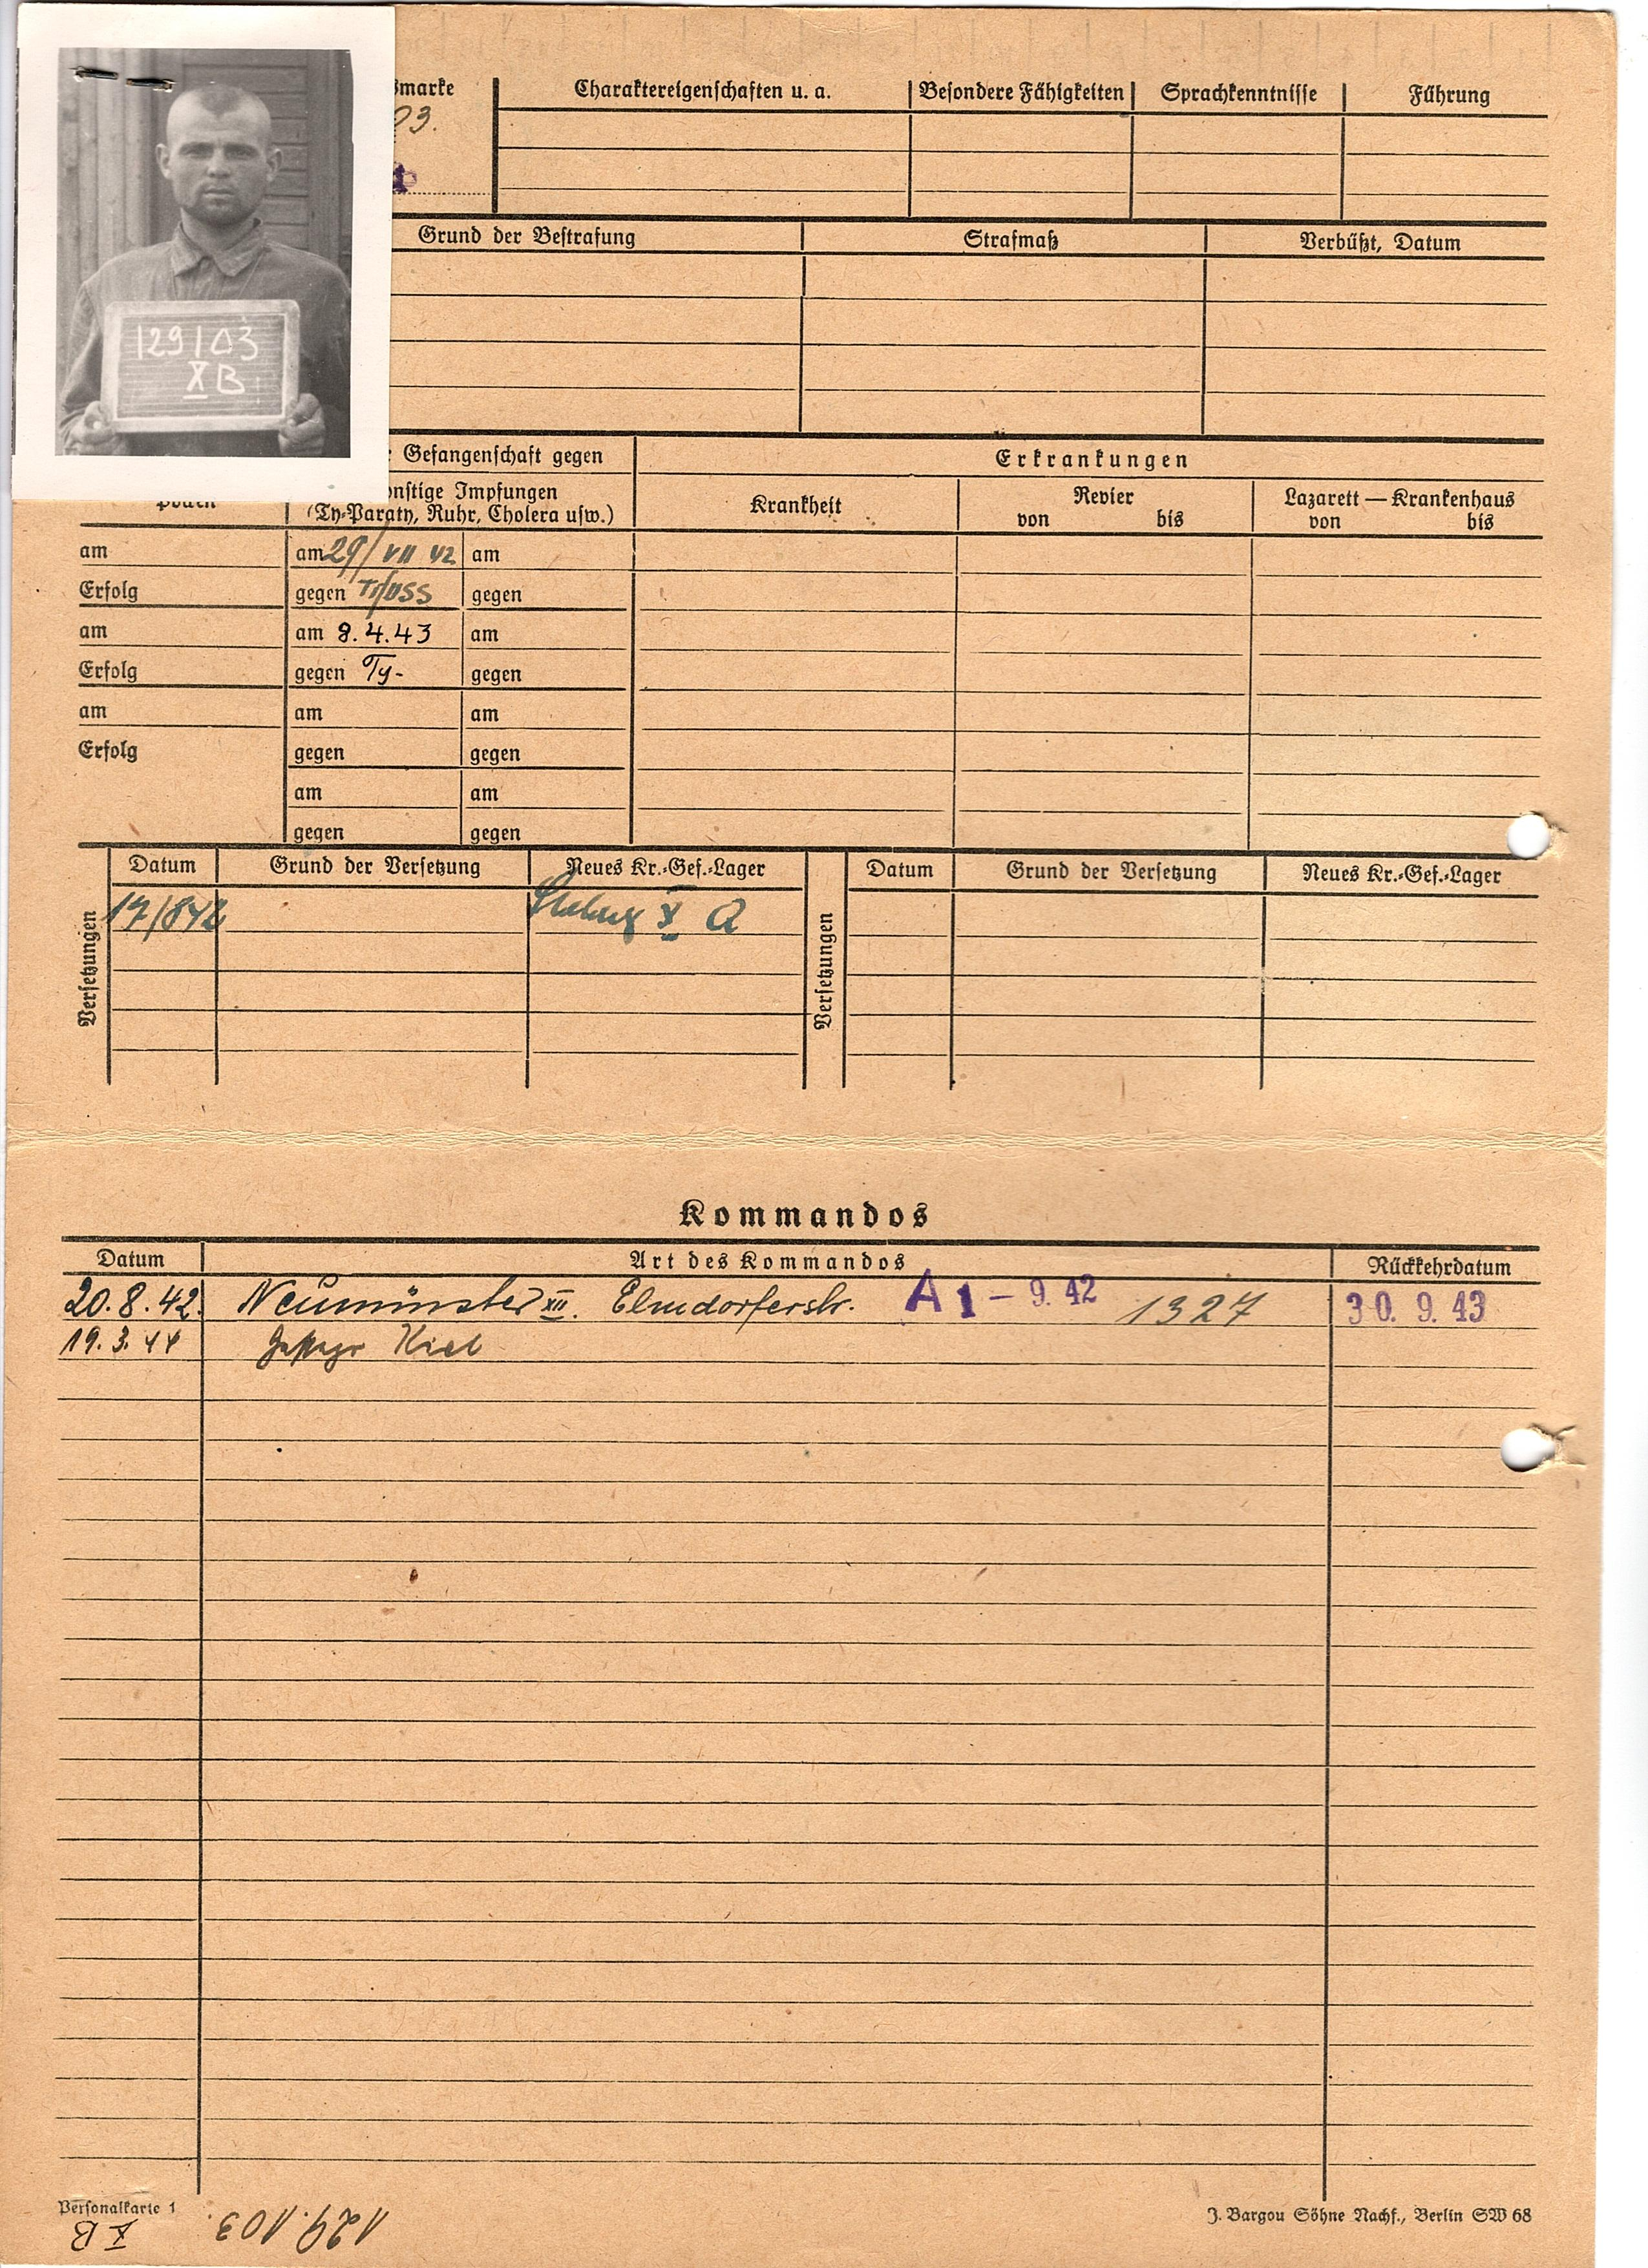 129103
X B
marke
03.
Charaktereigenschaften u. a.
Besondere Fähigkeiten
Sprachkenntnisse
Führung
Grund der Bestrafung
Strafmaß
Verbüßt, Datum
Gefangenschaft gegen
Erkrankungen
onstige Impfungen
(Ty-Paraty, Ruhr, Cholera usw.)
Krankheit
Revier
von bis
Lazarett — Krankenhaus
von bis
am am 29/VII 42 am
Erfolg gegen gegen
am am 8.4.43 am
Erfolg gegen Ty- gegen
am am am
Erfolg gegen gegen
am am
gegen gegen
Versetzungen
Datum Grund der Versetzung Neues Kr.-Gef.-Lager
17/842 X A
Versetzungen
Datum Grund der Versetzung Neues Kr.-Gef.-Lager
Kommandos
Datum Art des Kommandos Rückkehrdatum
20.8.42. Neumünster XII. Elmdorferstr. A 1 - 9. 42 1327 30. 9. 43
19.3.44 Kiel
Personalkarte 1
X B 129.103
J. Bargou Söhne Nachf., Berlin SW 68